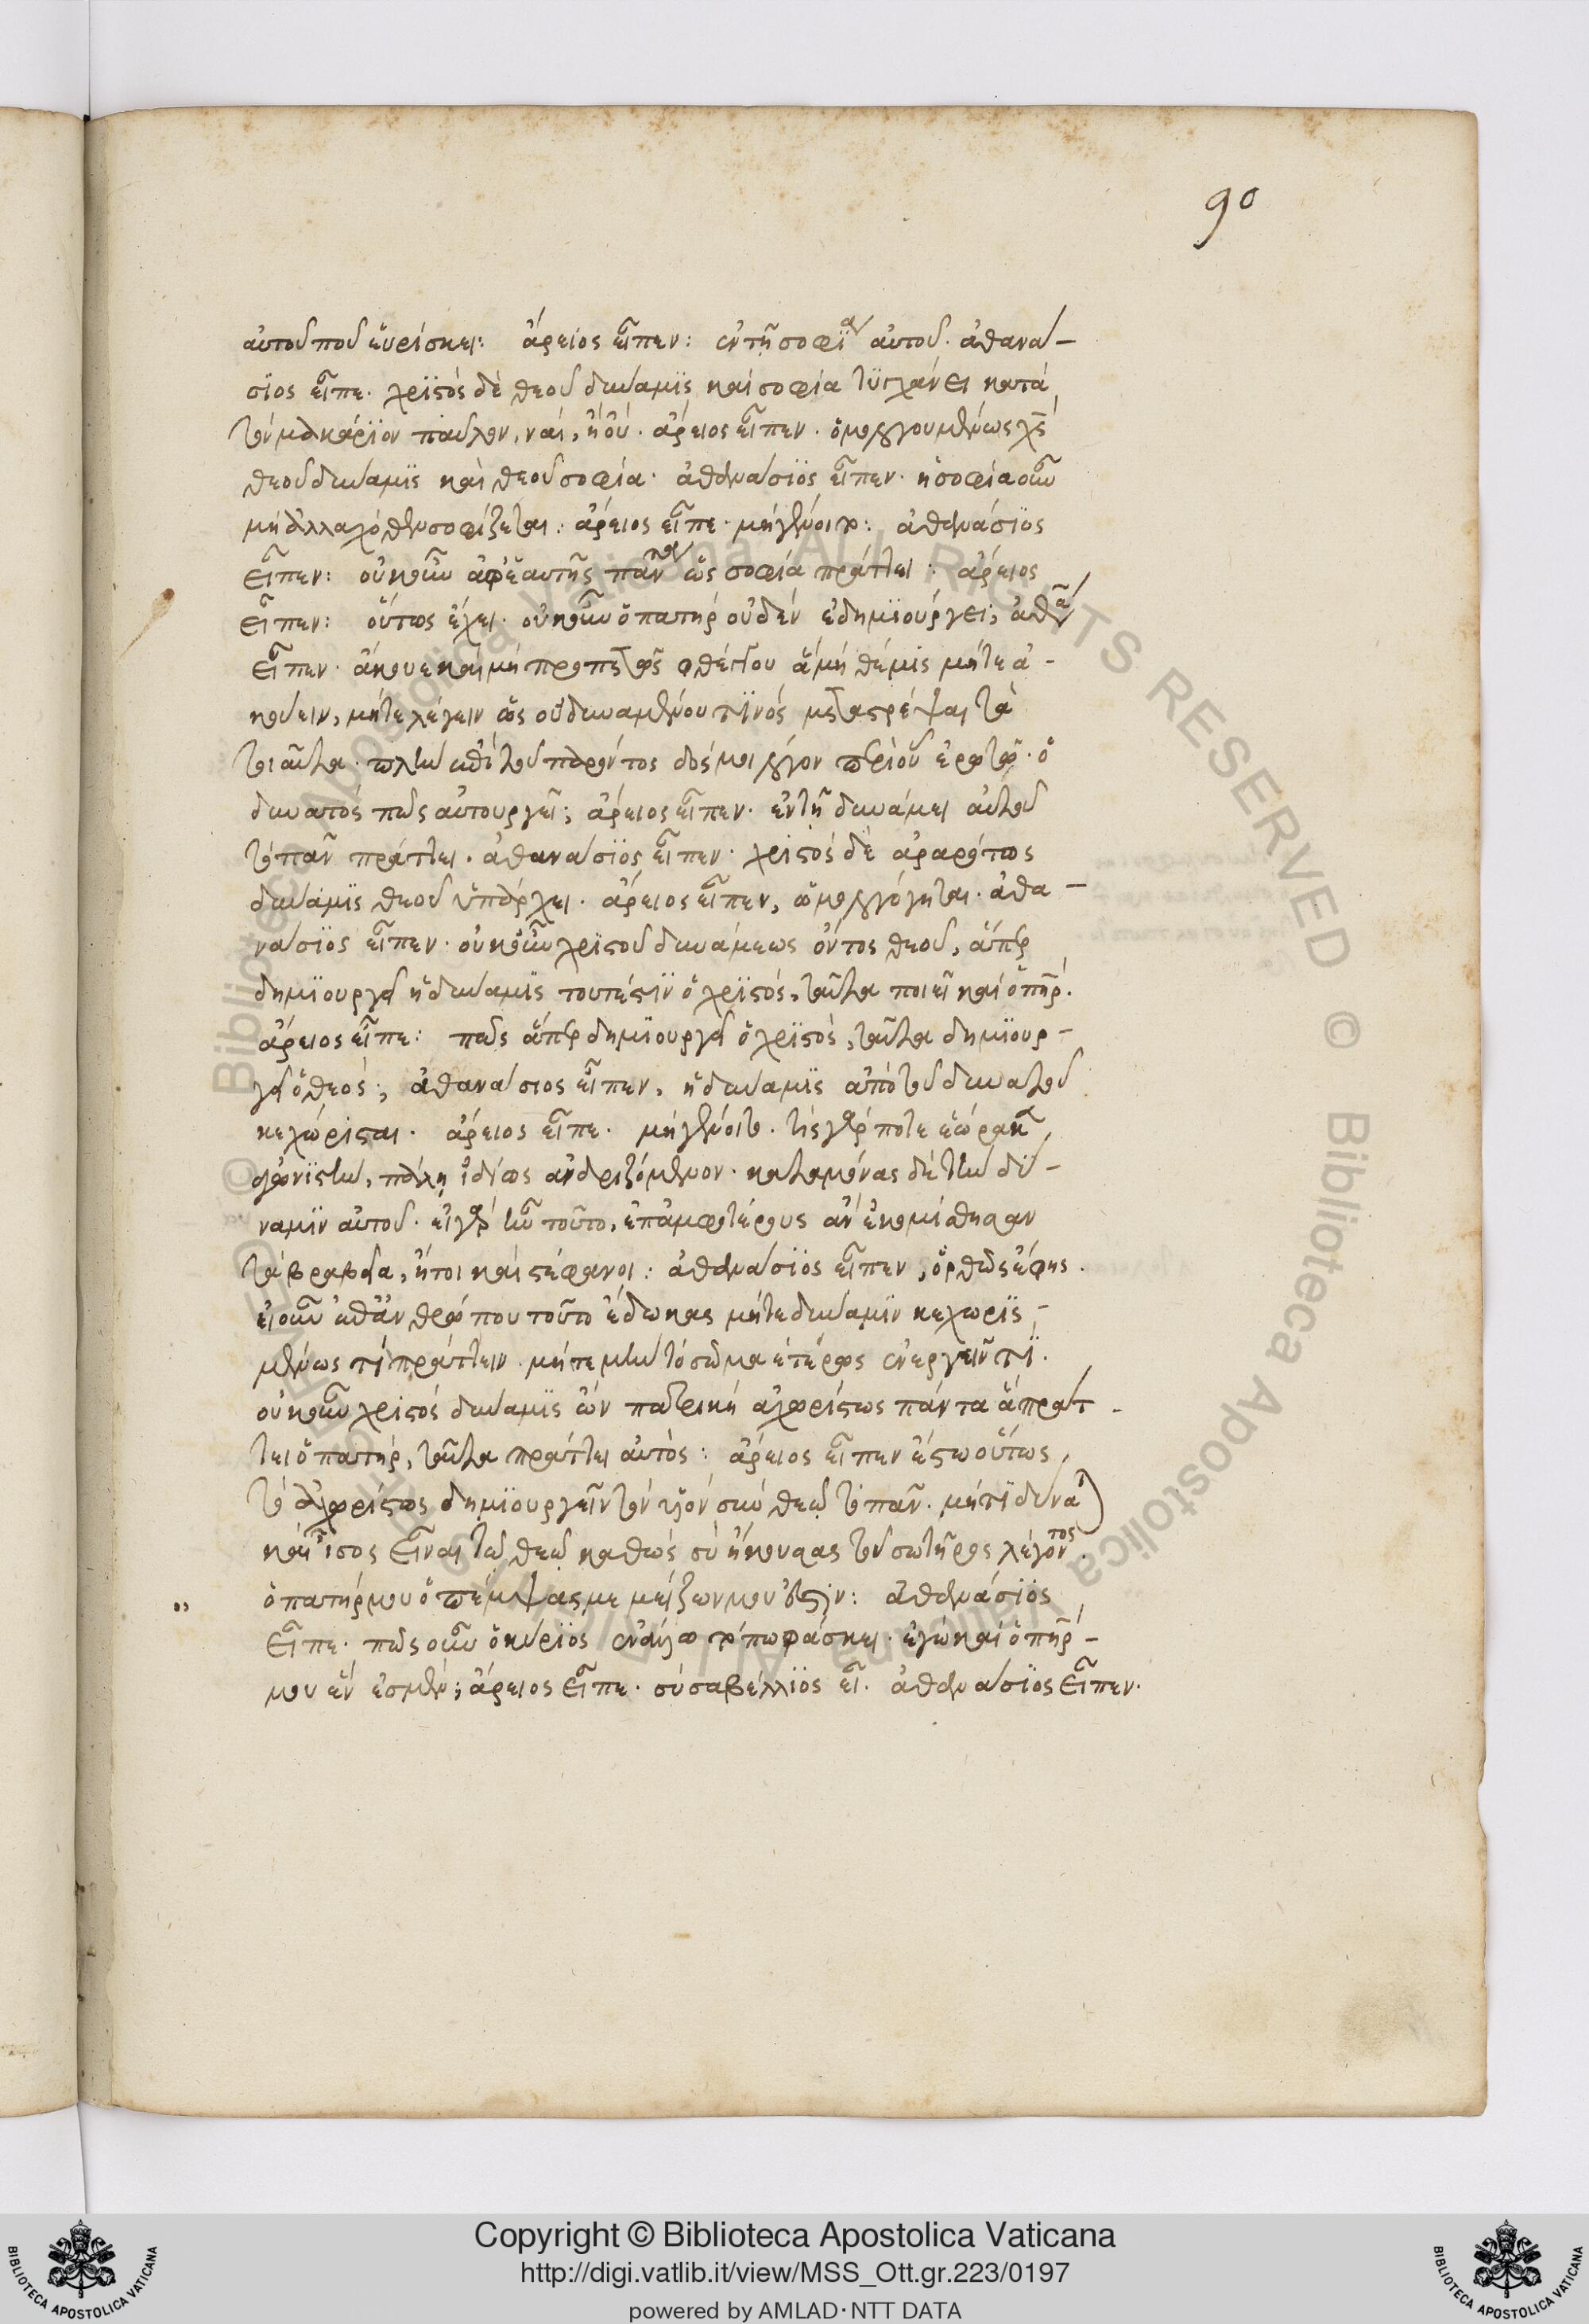 90
αὐτοῦ ποῦ εὑρίσκει: ἄρειος εἶπεν: ἐν τῇ σοφίᾳ αὐτοῦ. ἀθανά-
σϊος εἶπε. χρϊστὸς δὲ θεοῦ δύναμϊς καὶ σοφία τϋγχάνει κατὰ
τὸν μακάρϊον παῦλον, ναί, ἢ οὔ. ἄρειος εἶπεν. ὁμολογουμένως χς
θεοῦ δύναμϊς καὶ θεοῦ σοφία. ἀθανάσϊος εἶπεν. ἡ σοφία οὖν
μὴ ἀλλαχόθεν σοφίζεται: ἄρειος εἶπε. μὴ γένοιτο: ἀθανάσϊος
εἶπεν: οὐκοῦν ἀφ' ἑαυτῆς πάντα ὡς σοφία πράττει: ἄρειος
εἶπεν: οὕτως ἔχει. οὐκοῦν ὁ πατὴρ οὐδὲν ἐδημϊούργει; ἀθα
εἶπεν. ἄκουε καὶ μὴ προπετῶς φθέγγου ἃ μὴ θέμις μήτε ἀ-
κούειν, μήτε λέγειν ὡς οὐ δυναμένου τϊνός μεταστρέψαι τὰ
τοιαῦτα. πλὴν ἐπὶ τοῦ παρόντος δός μοι λόγον περὶ οὗ ἐρωτῶ. ὁ
δυνατὸς πῶς αὐτουργεῖ; ἄρειος εἶπεν. ἐν τῇ δυνάμει αὐτοῦ
τὸ πᾶν πράττει. ἀθανάσϊος εἶπεν. χριστὸς δὲ ἀραρότως
δύναμϊς θεοῦ ὑπάρχει. ἄρειος εἶπεν, ὡμολόγηται. ἀθα-
νάσϊος εἶπεν. οὐκοῦν χρϊστοῦ δυνάμεως ὄντος θεοῦ, ἅπερ
δημϊουργεῖ ἡ δύναμϊς τουτέστϊν ὁ χρϊστός, ταῦτα ποιεῖ καὶ ὁ πηρ.
ἄρειος εἶπε: πῶς ἅπερ δημϊουργεῖ ὁ χρϊστὸς, ταῦτα δημϊουρ-
γεῖ ὁ θεός; ἀθανάσιος εἶπεν, ἡ δύναμϊς ἀπὸ τοῦ δυνατοῦ
κεχώρισται. ἄρειος εἶπε. μὴ γένοιτο. τίς γάρ ποτε ἑώρακε
ἀγωνϊστὴν, πάλῃ ἰδίως ἀνδριζόμενον. καταμόνας δὲ τὴν δύ-
ναμϊν αὐτοῦ. εἰ γὰρ ἦν τοῦτο, ἐπ' ἀμφοτέρους ἂν ἐκομίσθησαν
τὰ βραβεῖα, ἤτοι καὶ στέφανοι: ἀθανάσϊος εἶπεν, ὀρθῶς ἔφης.
εἰ οὖν ἐπ' ἀνθρώπου τοῦτο ἔδωκας μήτε δύναμϊν κεχωρϊσ-
μένως τϊ πράττειν. μήτε μὴν τὸ σῶμα ἑτέρως ἐνεργεῖν τϊ.
οὐκοῦν χριστὸς δύναμϊς ὢν πατρικὴ ἀχωρίστως πάντα ἃ πράτ-
τει ὁ πατήρ, ταῦτα πράττει αὐτὸς: ἄρειος εἶπεν ἔστω οὕτως,
τὸ ἀχωρίστως δημϊουργεῖν τὸν υἱὸν σὺν θεῷ τὸ πᾶν. μήτϊ δύνα
καὶ ἴσος εἶναι τῷ θεῷ καθὼς σὺ ἤκουσας τοῦ σωτῆρος λέγοντος.
ὁ πατήρ μου ὁ πέμψας με μείζων μου ἐστϊν: ἀθανάσϊος
εἶπε. πῶς οὖν ὁ κύρϊος ἐν ἄλλῳ τόπῳ φάσκει. ἐγὼ καὶ ὁ πηρ-
μου ἕν ἐσμεν; ἄρειος εἶπε. σὺ σαβέλλϊος εἶ. ἀθανάσϊος εἶπεν.
Copyright © Biblioteca Apostolica Vaticana
http://digi.vatlib.it/view/MSS_Ott.gr.223/0197
powered by AMLAD·NTT DATA